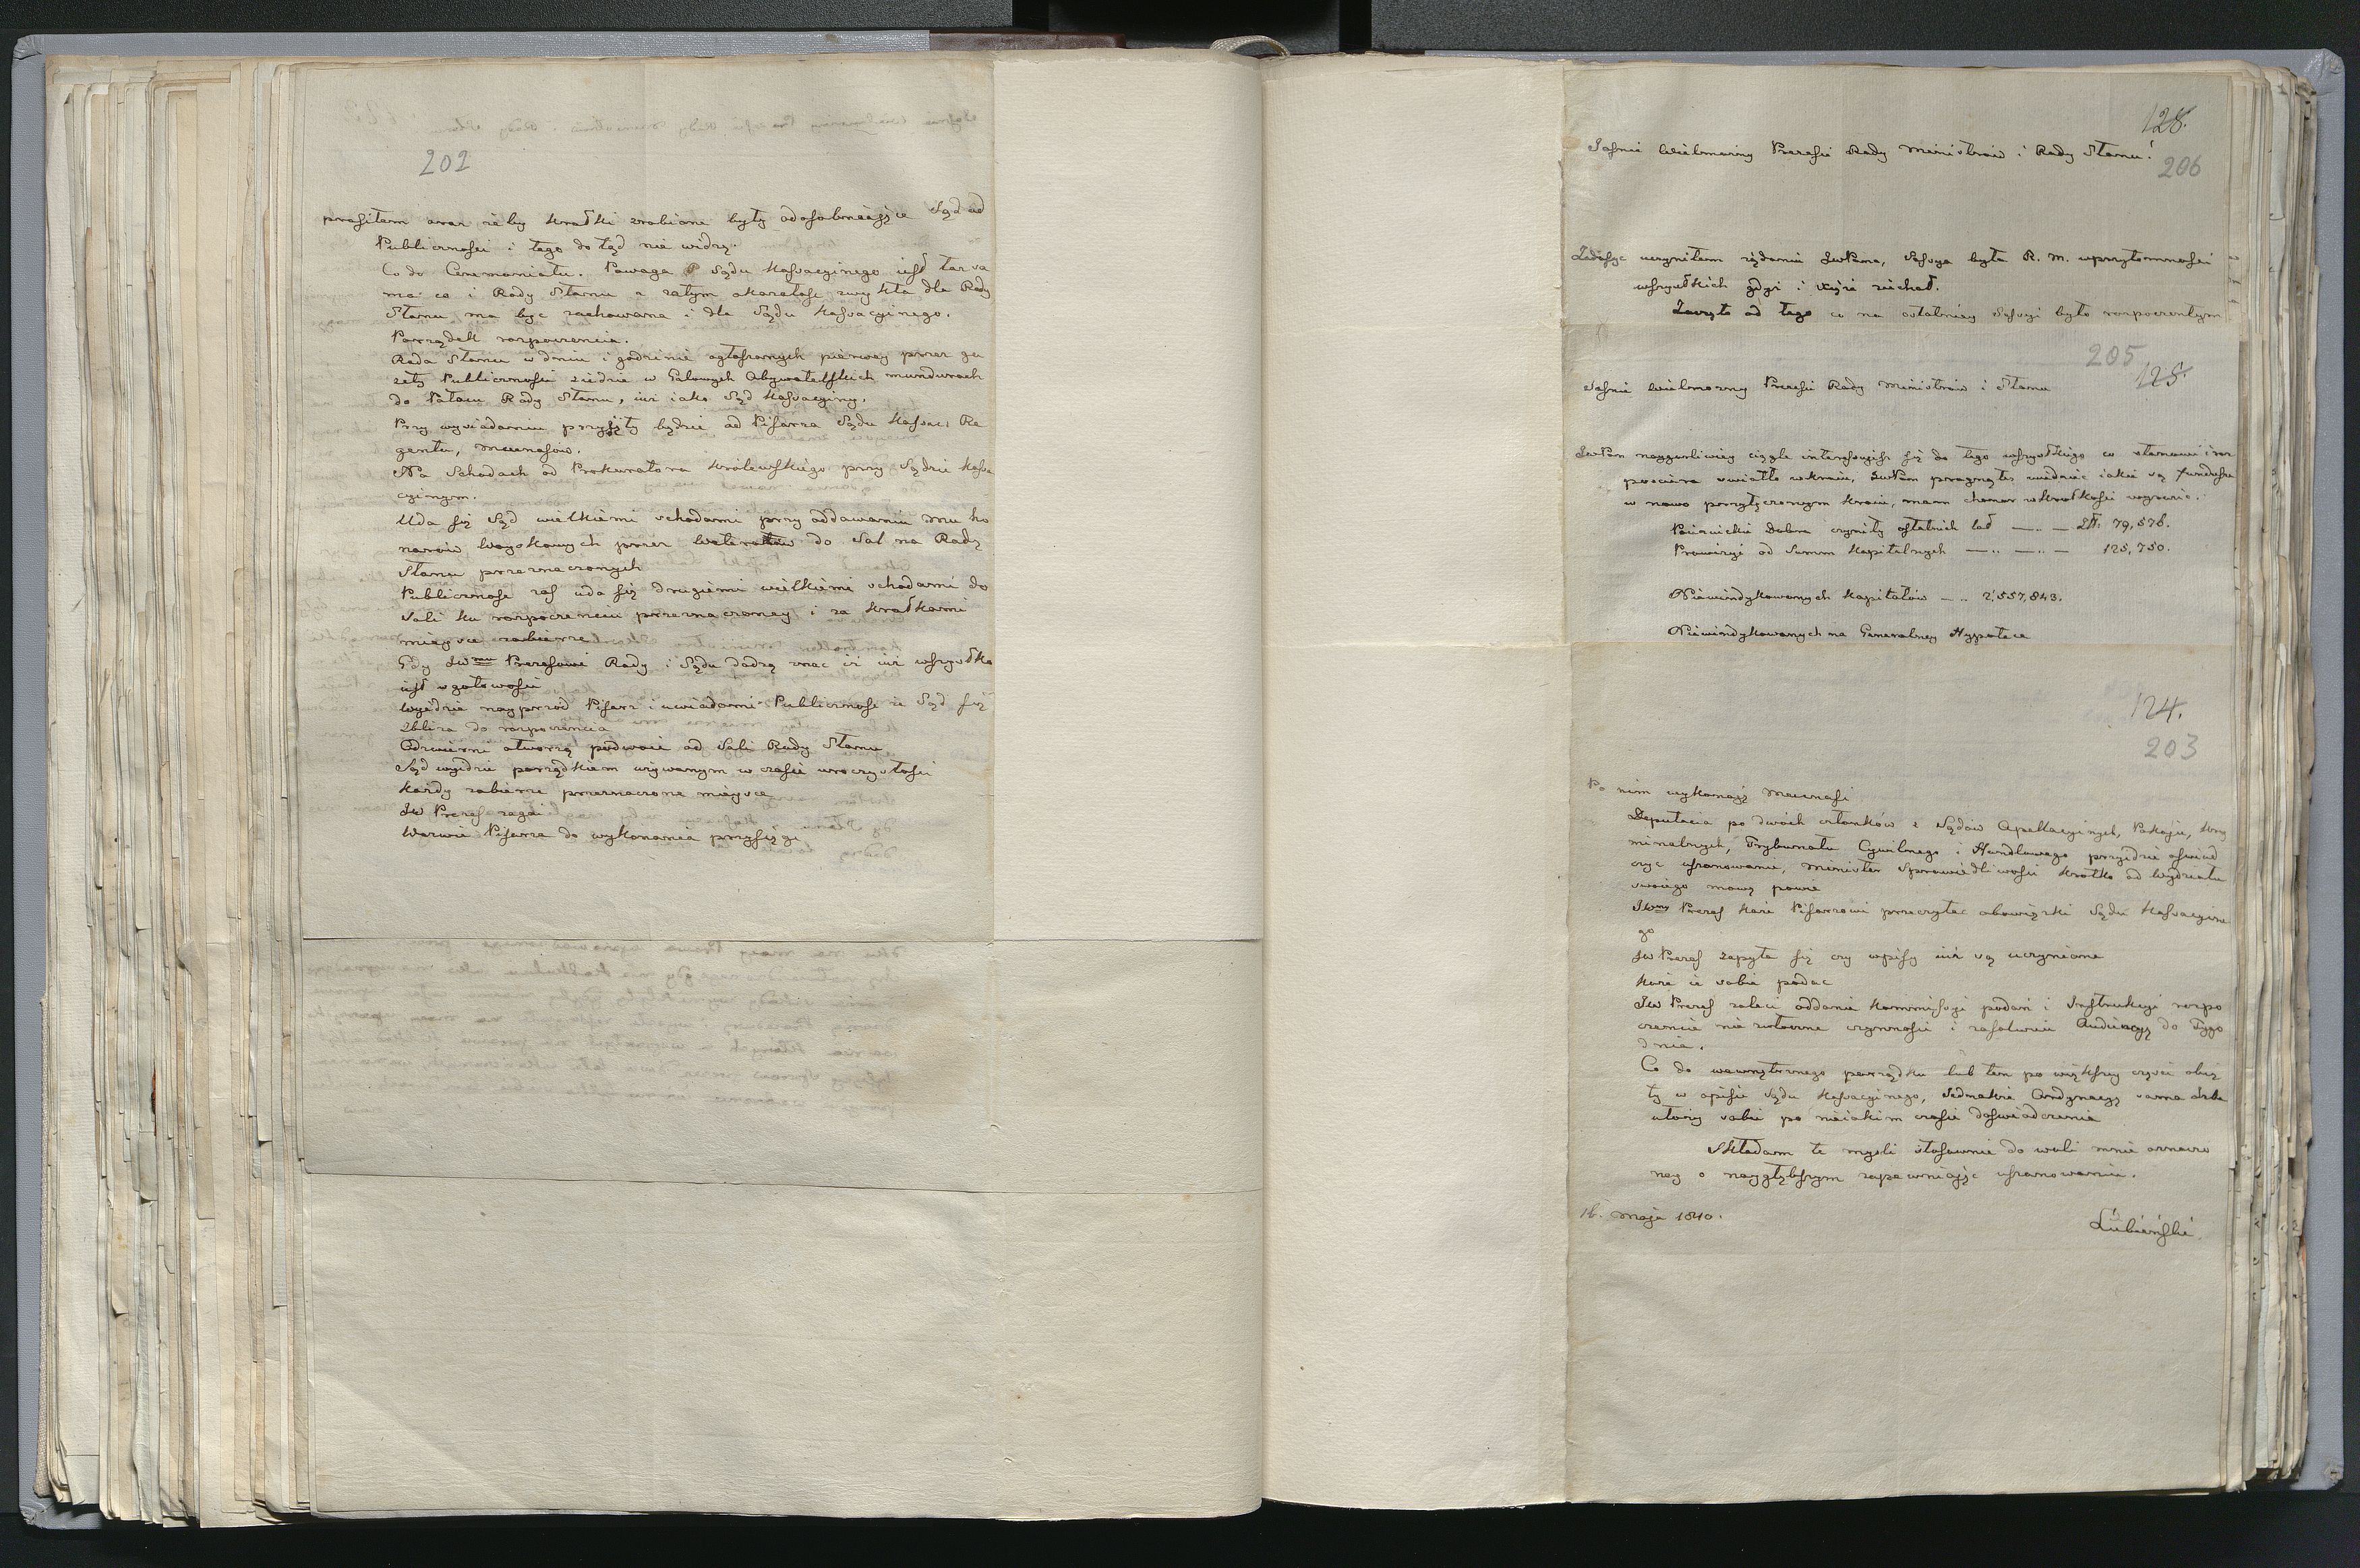 202
prosiłem oraz żeby kratki zrobione były odosobniaiące Sąd od
Publicznosci i tego do tąd nie widzę.
Co do Ceremoniału. Powaga Sądu Kassacyinego iest taż sa
ma co i Rady Stanu a zatym okazałosc zwykła dla Rady
Stanu ma byc zachowana i dla Sądu Kassacyinego.
Porządek rozpoczęcia.
Rada Stanu w dniu i godzinie ogłoszonych pierwey przez ga
zety Publicznosci ziedzie w Galowych Obywatelskich mundurach
do Pałacu Rady Stanu, iuż iako Sąd Kassacyiny.
Przy wysiadaniu przyięty będzie od Pisarza Sądu Kassac: Re
genta, Mecenasów.
Na Schodach od Prokuratora Królewskiego przy Sądzie Kassa
cyinym.
Uda się Sąd wielkiemi schodami przy oddawaniu mu ho
norów Woyskowych przez Weteranów do Sal na Radę
Stanu przeznaczonych
Publicznosc zas uda się drugiemi wielkiemi schodami do
Sali ku rozpoczęciu przeznaczoney i za kratkami
mieysce zabierze
Gdy JWmu Prezesowi Rady i Sądu dadzą znac iż iuż wszystko
iest w gotowosci
Wyidzie nayprzod Pisarz i uwiadomi Publicznosc że Sąd się
zbliża do rozpoczęcia
Odzwierni otworzą podwoie od Sali Rady Stanu
Sąd wyidzie porządkiem używanym w czasie uroczystosci
Każdy zabierze przeznaczone mieysce
JW Prezes zagai
Wezwie Pisarza do wykonania przysięgi
128.
Jasnie Wielmożny Prezesie Rady Ministrów i Rady Stanu!
206
Zadosyc uczyniłem żądaniu JWPana, Sessya była R. M. w przytomnosci
wszystkich gdyż i Xiąże ziechał.
Zaczęto od tego co na ostatniey Sessyi było rozpoczętym
205
125.
Jasnie Wielmożny Prezesie Rady Ministrów i Stanu
JWPan naygorliwiey ciągle interessuiesz się do tego wszystkiego co stanowi i roz
pociera swiatło w kraiu, JWPan pragnąłes wiedziec iakie są fundusze
w nowo przyłączonym kraiu, mam honor w krotkosci wyrazic.
Poiezuickie Dobra czyniły ostatnich lat — .. — Zł: 79,578.
Prowizyi od Summ Kapitalnych — .. — .. — 125,750.
Niewindykowanych Kapitałów — .. 2,557,843.
Niewindykowanych na Generalney Hypotece
124.
203
Po nim wykonaią Mecenasi
Deputacia po dwóch członków z Sądów Apellacyinych, Pokoju, Kry
minalnych, Trybunału Cywilnego i Handlowego przyidzie oswiad
czyc uszanowanie, Minister Sprawiedliwosci krotko od Wydziału
swoiego mowę powie
JWny Prezes każe Pisarzowi przeczytac obowiązki Sądu Kassacyine
go
JW Prezes zapyta się czy wpisy iuż są uczynione
każe ie sobie podac
JW Prezes zaleci oddanie Kommissyi podań i Instrukcyi rozpo
częcie nie zwłoczne czynnosci i zasolwuie Audiencyą do Tygo
dnia.
Co do wewnętrznego porządku lub ten po większey części obię
ty w opisie Sądu Kassacyinego, Jednakże Ordynacyą sama
ułoży sobie po nieiakim czasie doswiadczenia
Składam te mysli stosownie do woli mnie oznaczo
ney o naygłębszym zapewniając uszanowaniu.
16. Maja 1810.
Łubieński